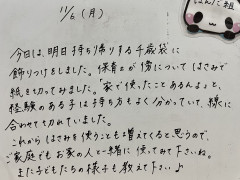 11/6(月)
ぱんだ組
今日は、明日持ち帰りする千歳袋に
飾りつけをしました。保育士が傍についてはさみで
紙を切ってみました。「家で使ったことあるんよ」と、
経験のある子は持ち方もよく分かっていて、線に
合わせて切れていました。
これからはさみを使うことも増えてくると思うので、
ご家庭でもお家の人と一緒に使ってみて下さいね。
また子どもたちの様子も教えて下さい♪